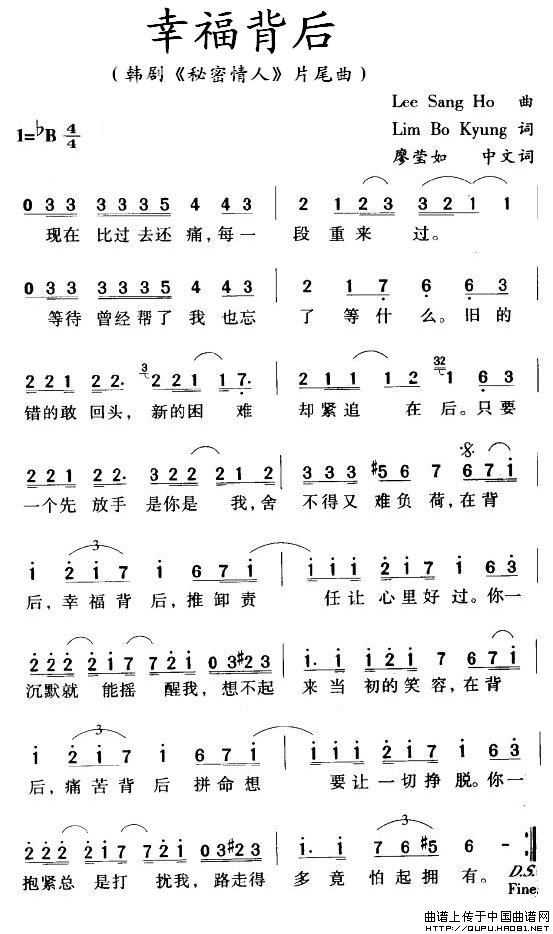 幸福背后
(韩剧《秘密情人》片尾曲)
Lee Sang Ho 曲
1=♭B 4/4 Lim Bo Kyung 词
廖莹如 中文词
0 3 3 3 3 3 5 4 4 3 | 2 1 2 3 3 2 1 1
现在 比过去还痛,每一 段重来 过。
0 3 3 3 3 3 5 4 4 3 | 2 1 7 6 6 3
等待 曾经帮了我也忘 了等什么。旧的
2 2 1 2 2. 3 2 2 1 1 7. | 2 1 1 1 2 32 1 6 3
错的敢 回头,新的困 难 却紧追 在后。只要
2 2 1 2 2. 3 2 2 2 1 2 | 3 3 3 #5 6 7 6 7 1
一个先 放手 是你是 我,舍 不得又 难负荷,在背
3
1 2 1 7 1 6 7 1 | 1 1 1 2 1 7 1 6 3
后,幸福背 后,推卸责 任让 心里好过。你一
2 2 2 2 1 7 7 2 1 0 3 #2 3 | 1. 1 1 2 1 7 6 7 1
沉默就 能摇 醒我,想不起 来当 初的笑容,在背
3
1 2 1 7 1 6 7 1 | 1 1 1 2 1 7 1 6 3
后,痛苦背后 拼命想 要让一切挣脱。你一
3
2 2 2 2 1 7 7 2 1 0 3 #2 3 | 1. 7 6 #5 6 - :||
抱紧总 是打 扰我,路走得 多竟 怕起拥有。D.S.
Fine.
曲谱上传于中国曲谱网
HTTP://QUPU.HAO81.NET